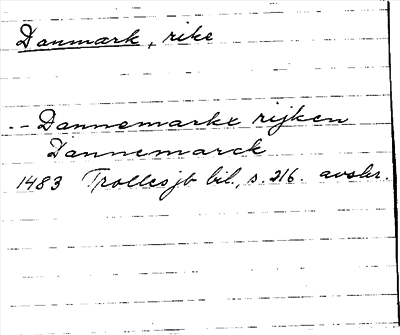 Danmark, rike
-- Dannemarks rijken
Dannemarck
1483 Trollesjb bil., s. 216. avskr.